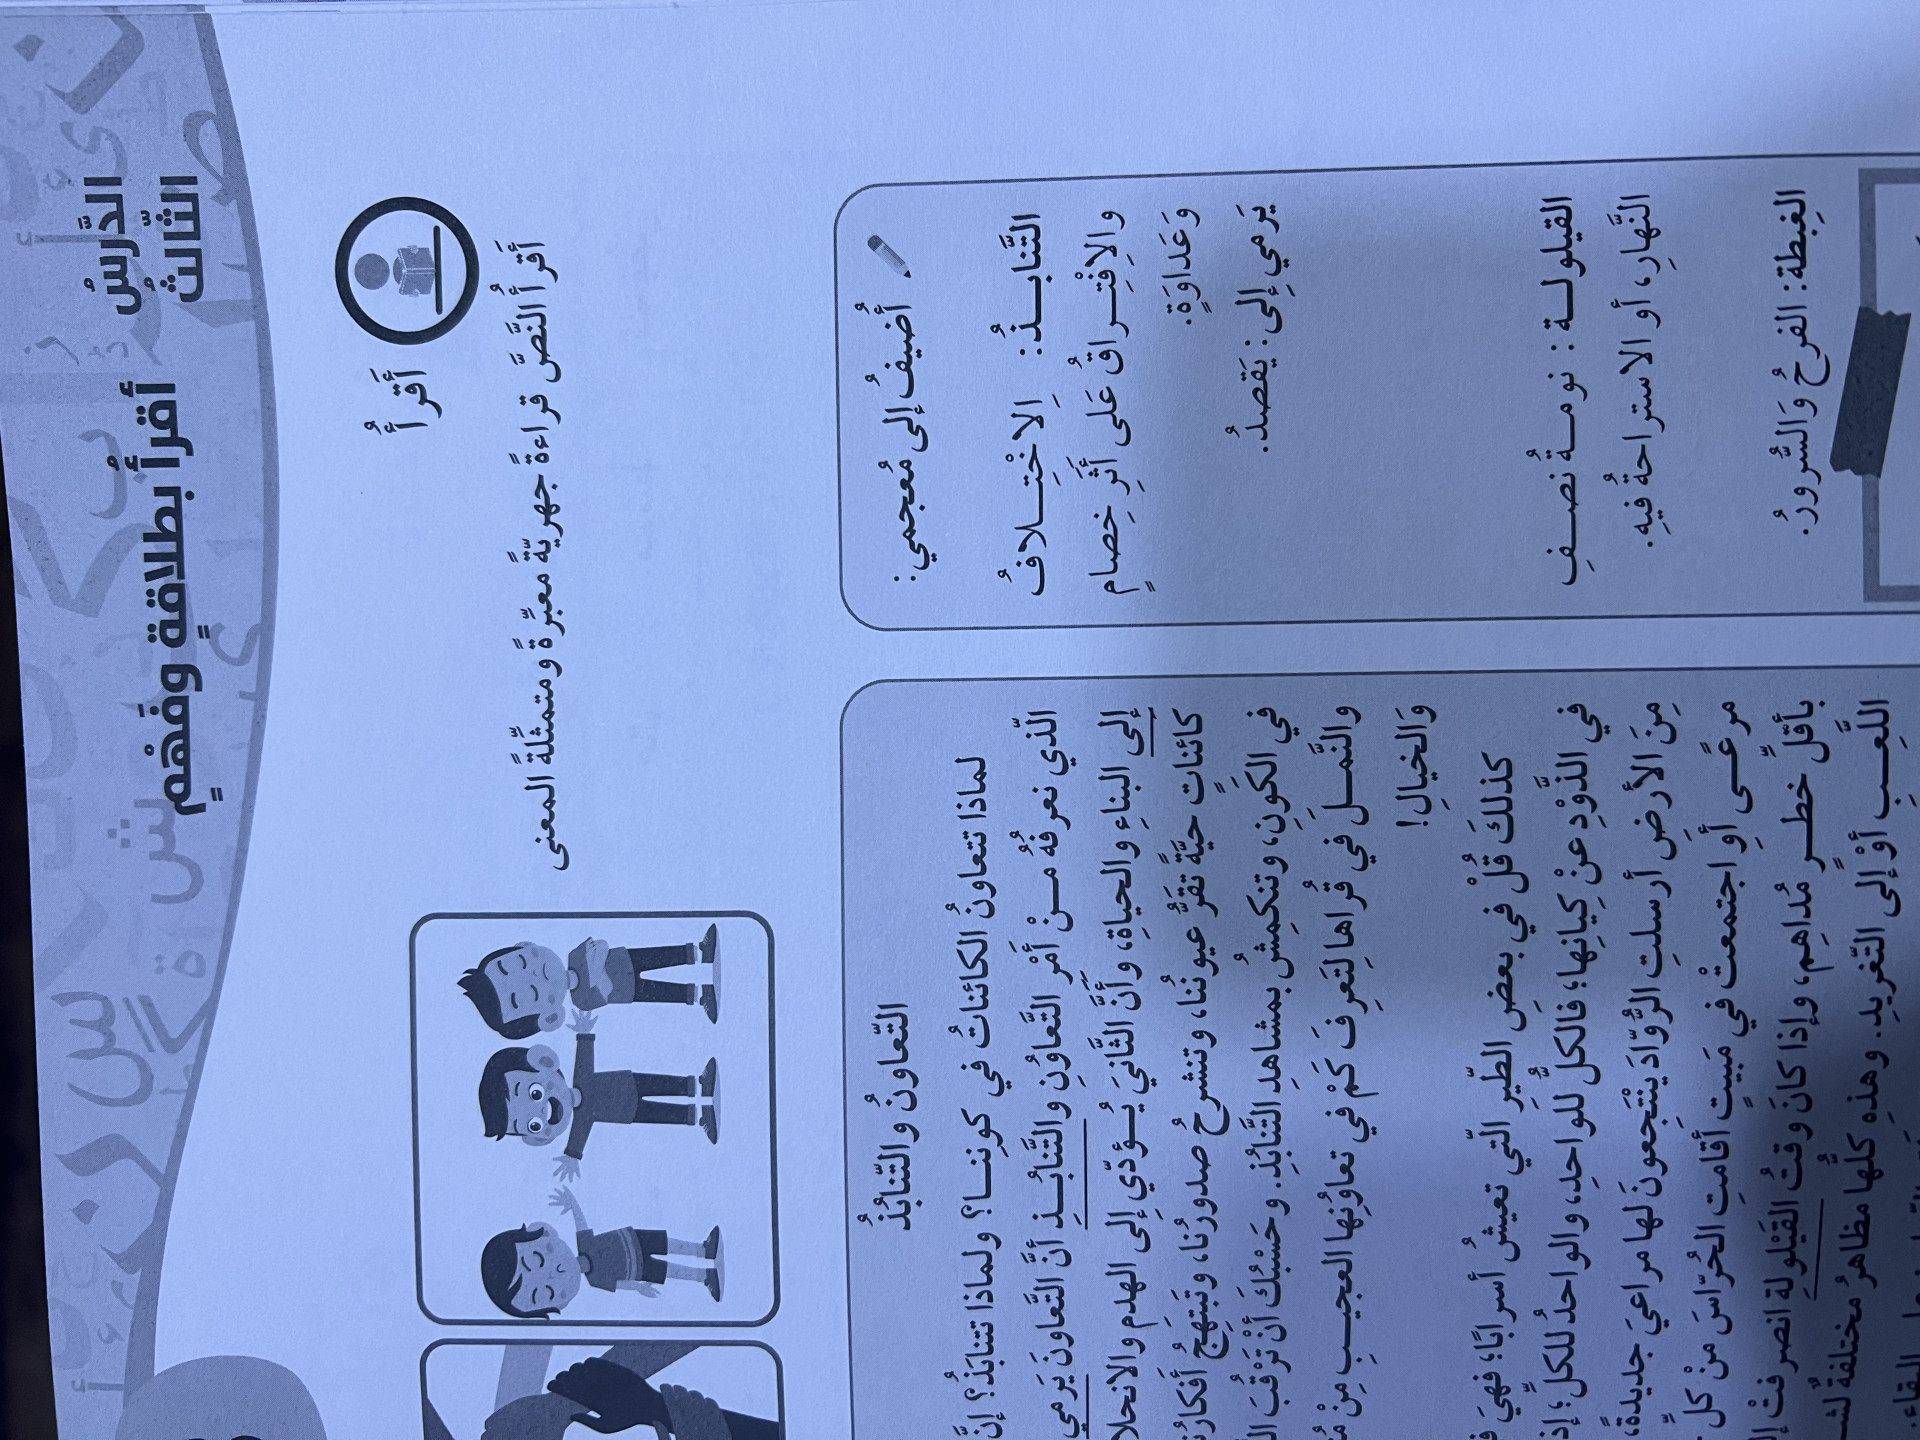 الدَّرسُ
الثّالثُ
أقرأُ بطلاقةٍ وفَهْمٍ
أَقرأُ
أَقرأُ النَّصَّ قراءةً جهريّةً معبّرةً ومتمثّلةً المعنى
أُضيفُ إلى مُعجمي:
التَّنابُذُ: اِلاخْتِلافُ
والِافْتِراقُ عَلى أَثَرِ خِصامٍ
وَعَداوَةٍ.
يَرمي إلى: يَقصدُ.
القيلولة: نومةُ نصفِ
النَّهارِ، أو الاستراحةُ فيهِ.
الغِبطة: الفرحُ وَالسُّرورُ.
التّعاونُ والتّنابُذُ
لماذا تتعاونُ الكائناتُ في كونِنا؟ ولماذا تتنابَذُ؟ إنَّ
الّذي نعرفهُ مِنْ أَمْرِ التَّعاوُنِ والتَّنابُذِ أنَّ التَّعاونَ يَرمي
إلى البناءِ والحياةِ، وأَنَّ الثّانيَ يُؤدّي إلى الهدمِ والانحلا
كائناتٍ حيَّةً تقَرُّ عيونُنا، وتنشرحُ صُدورُنا، وتَبتَهِجُ أفكارُنا
في الكَونِ، وتنكمِشُ بمشاهدِ التَّنابُذِ. وحَسْبُكَ أنْ تَرْقُبَ
والنَّملَ في قُراها لتَعرِفَ كَمْ في تعاوُنِها العجيبِ مِنْ
وَالخيالِ!
كذلكَ قُلْ في بعضِ الطّيرِ الّتي تعيشُ أسرابًا؛ فهيَ
في الذَّوْدِ عنْ كِيانِها؛ فالكلُّ للواحدِ، والواحدُ للكلِّ؛ إذ
مِنَ الأرضِ أرسلتِ الرُّوّادَ يَنْتَجِعونَ لها مراعيَ جديدةً،
مرعًى أَوِ اجتمعتْ في مَبيتٍ أقامتِ الحُرّاسَ مِنْ كلِّ
بأقلِّ خطرٍ مُداهِمٍ، وإذا كانَ وقتُ القَيْلولةِ انصرفتْ
اللَّعبِ أَوْ إلى التّغريدِ. وهذهِ كلُّها مظاهرُ مختلفةٌ